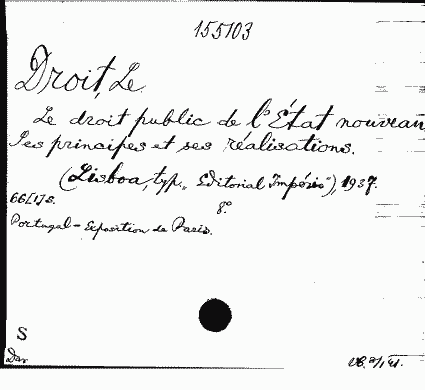 155103
Droit, Le
Le droit public de l'État nouveau
Ses principes et ses réalisations.
(Lisboa, typ. „Editorial Império"), 1937.
66[1]s. 8º
Portugal - Exposition de Paris.
S
Dar